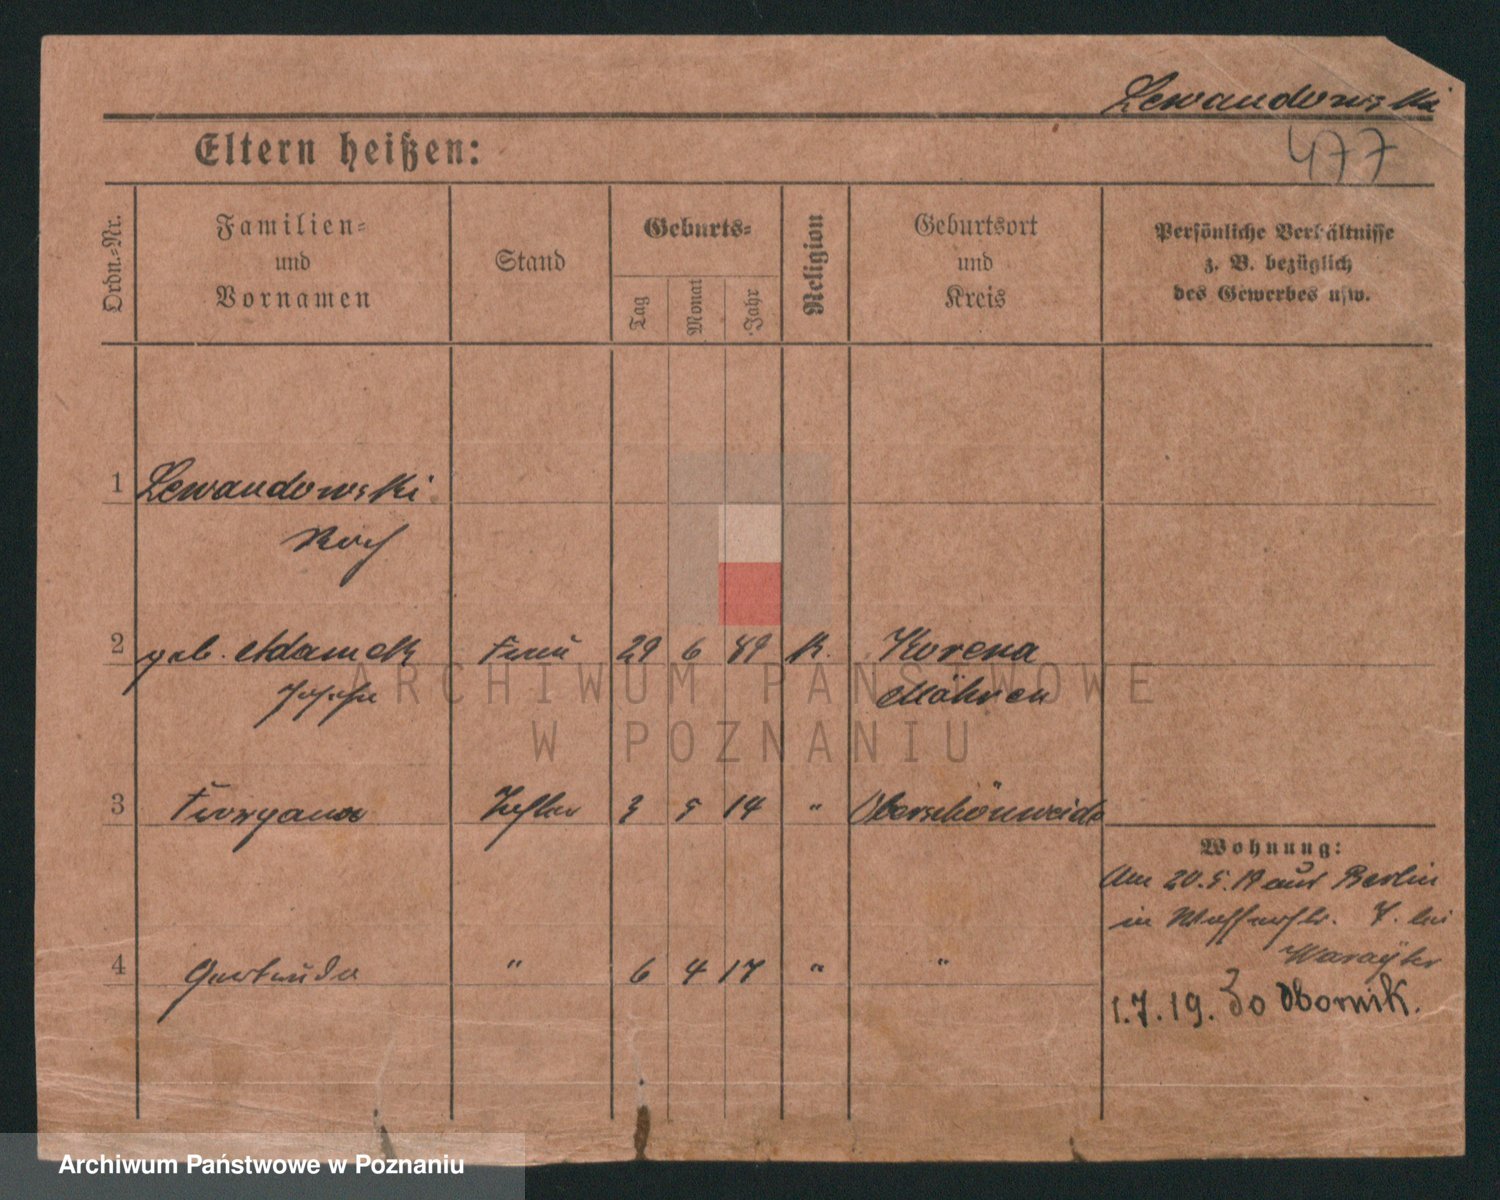 Lewandowski
477
Eltern heißen:
Ordn.-Nr.
Familien-
und
Vornamen
Stand
Geburts-
Tag
Monat
Jahr
Religion
Geburtsort
und
Kreis
Persönliche Verhältnisse
z. B. bezüglich
des Gewerbes usw.
1 Lewandowski
Roch
2 geb. Adamek Frau 29 6 89 K. Korena
Josefa Mähren
3 3 5 14 " Oberschönweide
Wohnung:
Am 20.5.19 aus Berlin
in 7. bei
4 Gertruda " 6 4 17 " "
1.7.19. Obornik.
ARCHIWUM PAŃSTWOWE
W POZNANIU
Archiwum Państwowe w Poznaniu